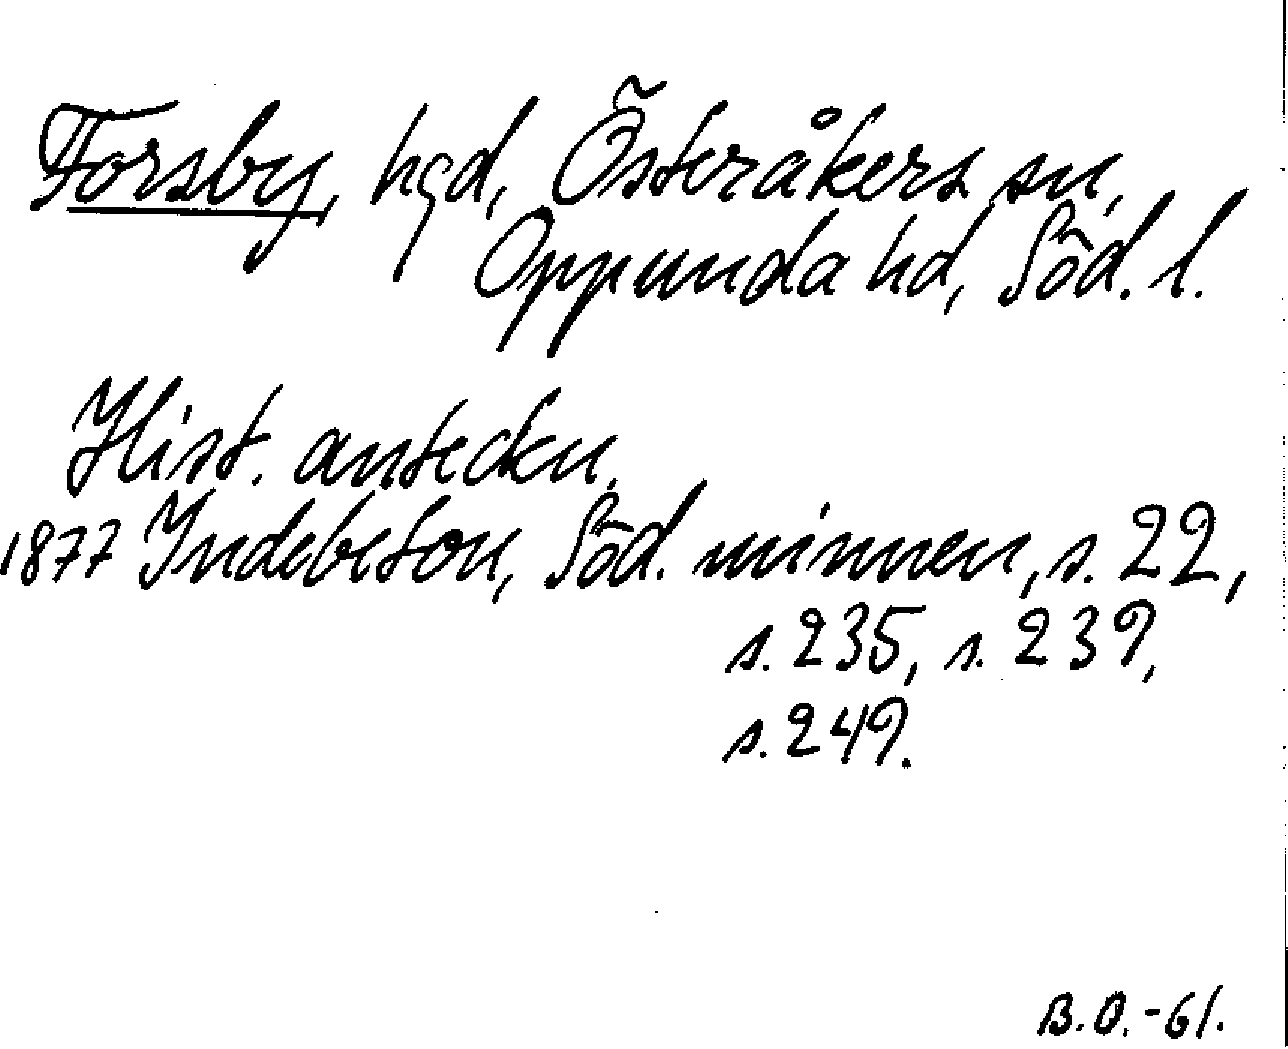 Forsby, hgd, Österåkers sn,
Oppunda hd, Söd. l.
Hist. anteckn.
1877 Indebetou, Söd. minnen, s. 22,
s. 235, s. 239,
s. 249.
B.O.-61.